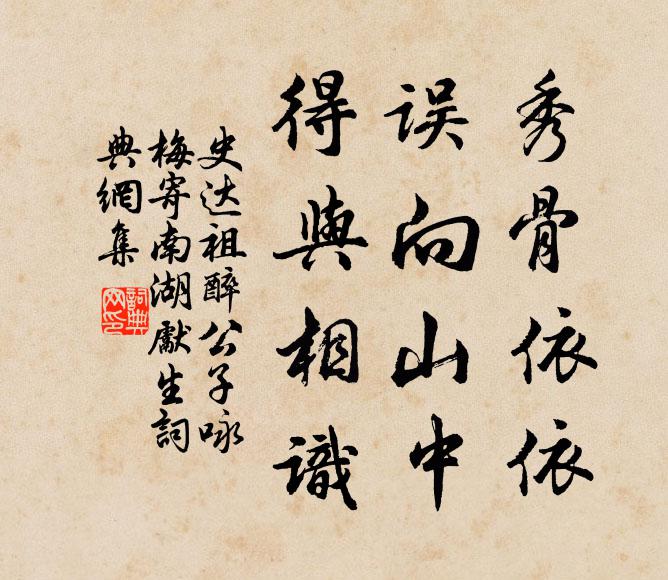 秀骨依依
误向山中
得與相識
史达祖醉公子咏
梅寄南湖獻生詞
典網集
詞典网印